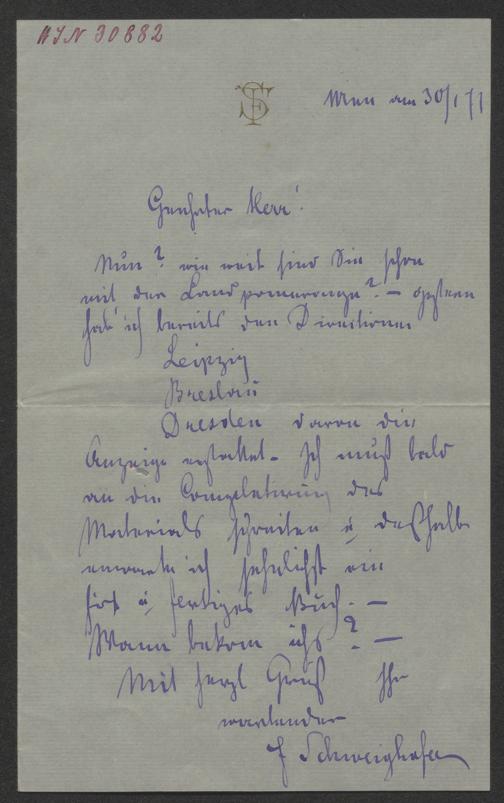 HJN 30882
Wien am 30/1 71
Geehrter Herr!
Nun? wie weit sind Sie schon
mit der Landpomeranze? – gestern
hab' ich bereits den Direktionen
Leipzig
Breslau
Dresden davon die
Anzeige erstattet. Ich muß bald
an die Completierung des
Materials schreiten u deßhalb
erwarte ich sehnlichst ein
fix u fertiges Buch. –
Wann bekom ichs? –
Mit herzl Gruß Ihr
wartender
F Schweighofer